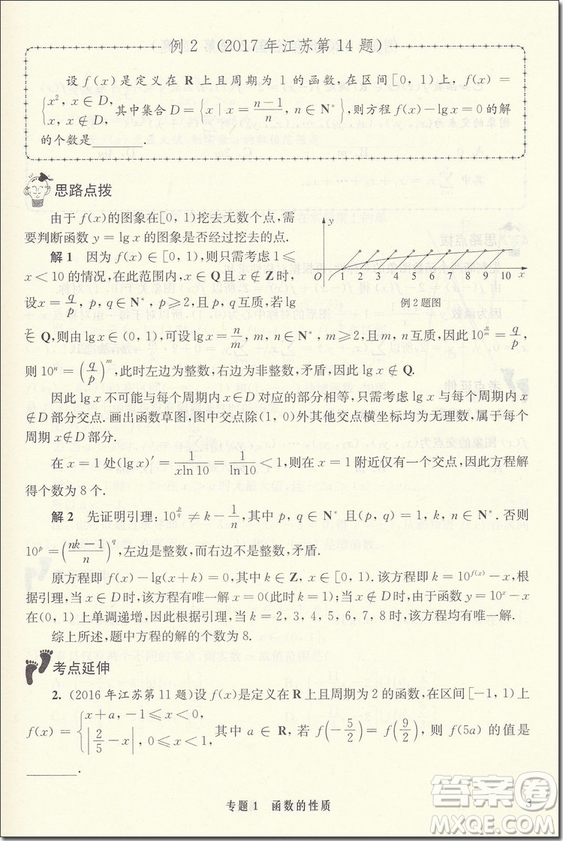 例 2 （2017 年江苏第 14 题）
设 f(x) 是定义在 R 上且周期为 1 的函数，在区间[0，1)上，f(x)=
{x²，x∈D，x，x∉D，其中集合 D={x｜x=(n−1)/n，n∈N*}，则方程 f(x)−lg x=0 的解
的个数是________.
思路点拨
由于 f(x)的图象在[0，1)挖去无数个点，需
要判断函数 y=lg x 的图象是否经过挖去的点.
解 1 因为 f(x)∈[0，1)，所以只需考虑 1≤
x<10 的情况，在此范围内，x∈Q 且 x∉Z 时，
设 x=q/p，p，q∈N*，p≥2，且 p，q 互质，若 lg x
y O 1 2 3 4 5 6 7 8 9 10 x
例 2 题图
∈Q，则由 lg x∈(0，1)，可设 lg x=n/m，m，n∈N*，m≥2，且 m，n 互质，因此 10^(n/m)=q/p，
则 10ⁿ=(q/p)^m，此时左边为整数，右边为非整数，矛盾，因此 lg x∉Q.
因此 lg x 不可能与每个周期内 x∈D 对应的部分相等，只需考虑 lg x 与每个周期
x∉D 的部分交点. 画出函数草图，图中交点除(1，0)外其他交点横坐标为无理数，属于每个
周期 x∉D 的部分.
在 x=1 处(lg x)′=1/(xln 10)=1/ln 10<1，则在 x=1 附近仅有一个交点，因此方程解
得个数为 8 个.
解 2 先证明引理：≠k−1/n，其中 p，q∈N*，p>q，k，n∈N*. 否则
10^p=((nk−1)/n)^q，左边是整数，而右边不是整数，矛盾.
原方程即 f(x)−lg(x+k)=0，其中 k∈Z，x∈[0，1). 该方程即 k=10^f(x)−x，根
据引理，当 x∈D 时，该方程无解；当 x∉D 时，该方程即 k=10^x−x，由于函数 y=10^x−x
在(0，1)上单调递增，因此当 k=1，2，3，4，5，6，7，8 时，该方程均有唯一解.
综上所述，题中方程的解的个数为 8.
考点延伸
2. (2016 年江苏第 11 题)设 f(x)是定义在 R 上且周期为 2 的函数，在区间[−1，1)上
f(x)={x+a，−1≤x<0，|2/5−x|，0≤x<1，其中 a∈R，若 f(−5/2)=f(9/2)，则 f(5a) 的值是
________.
专题 1 函数的性质 3
答案圈
MXQE.COM